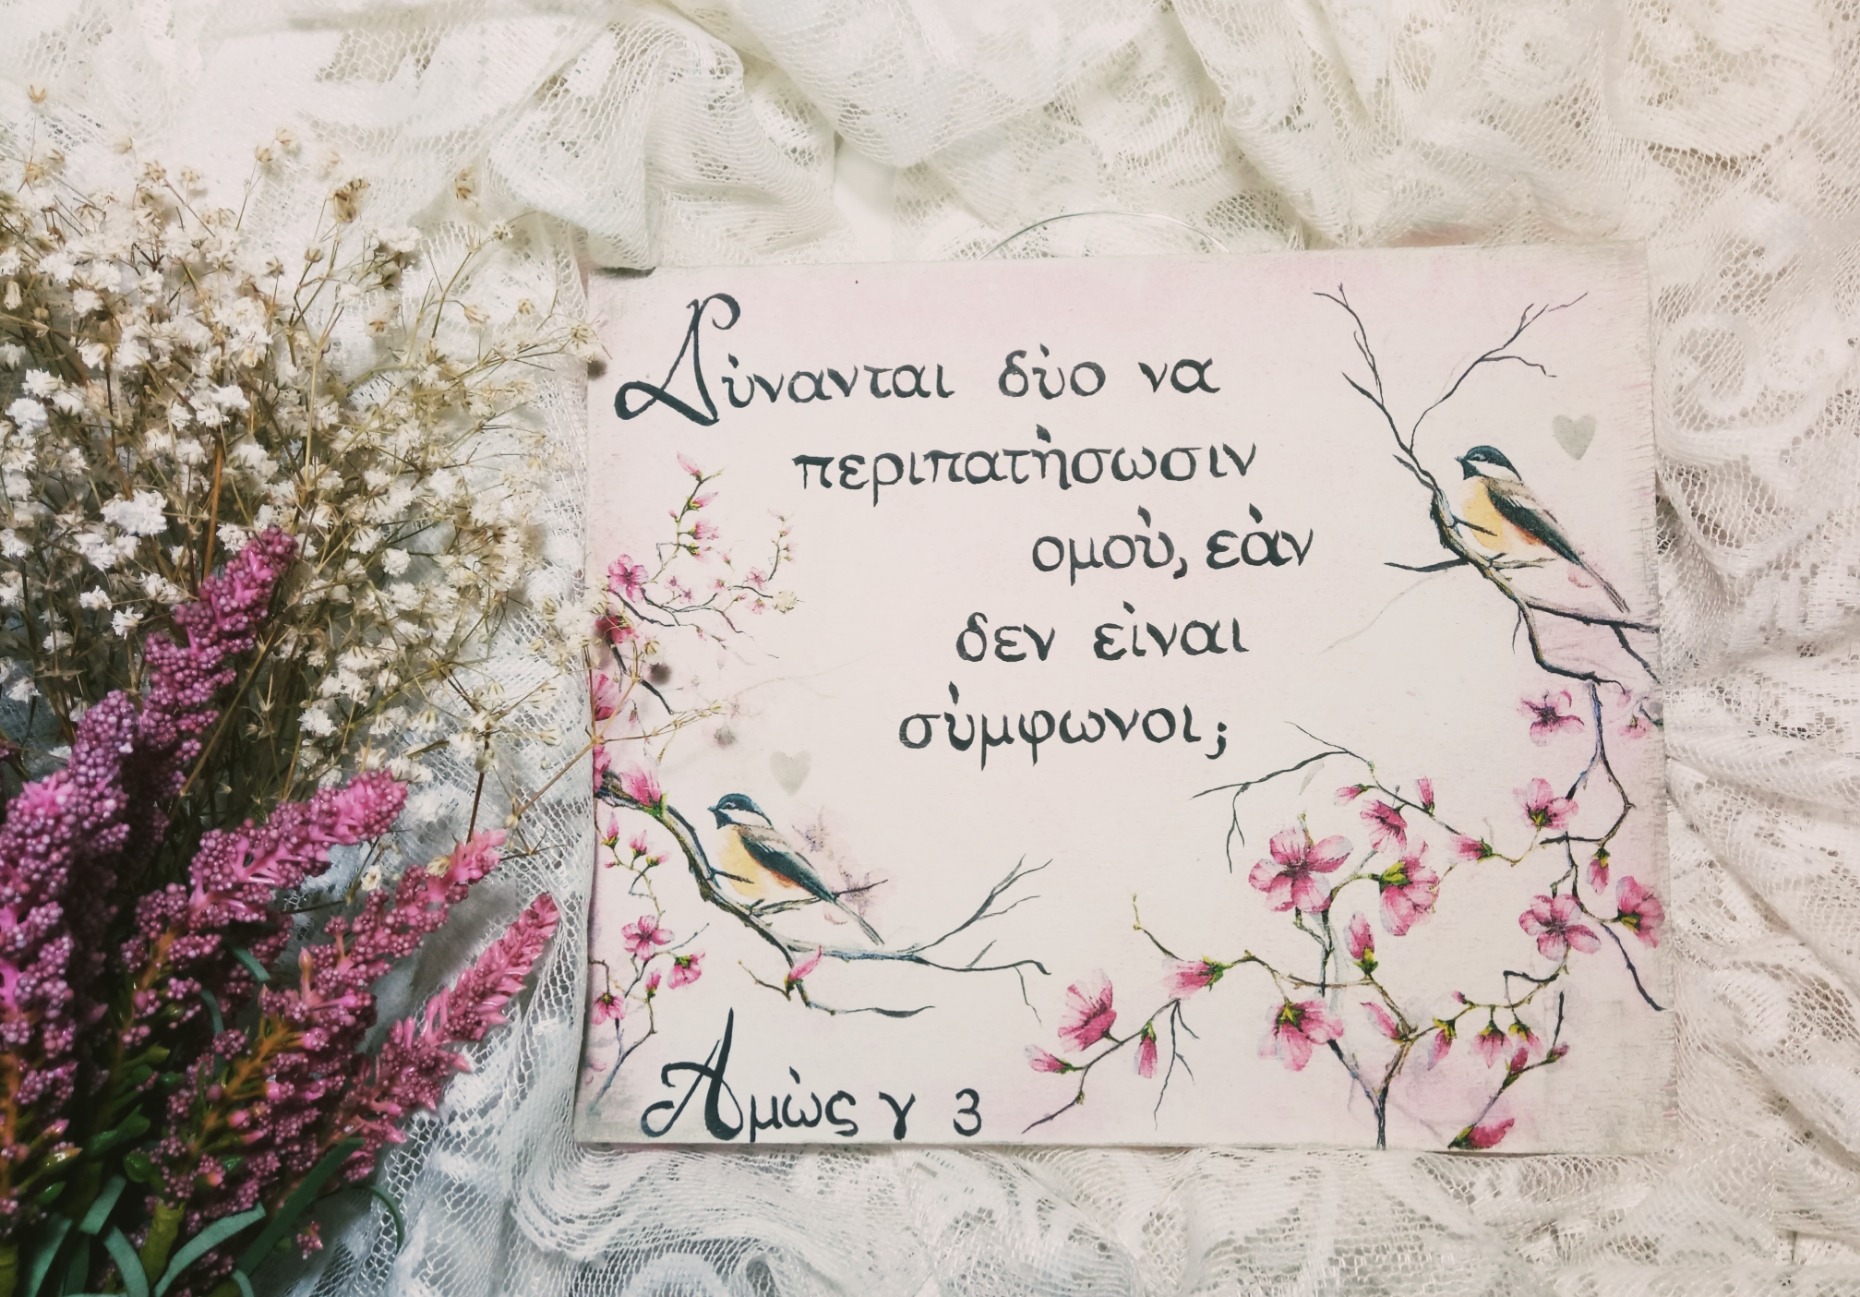 Δύνανται δύο να
περιπατήσωσιν
ομού, εάν
δεν είναι
σύμφωνοι;
Αμώς γ 3